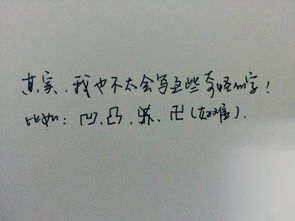 其实，我也不太会写这些奇怪的字！
比如：凹、凸、、卍（太难）.